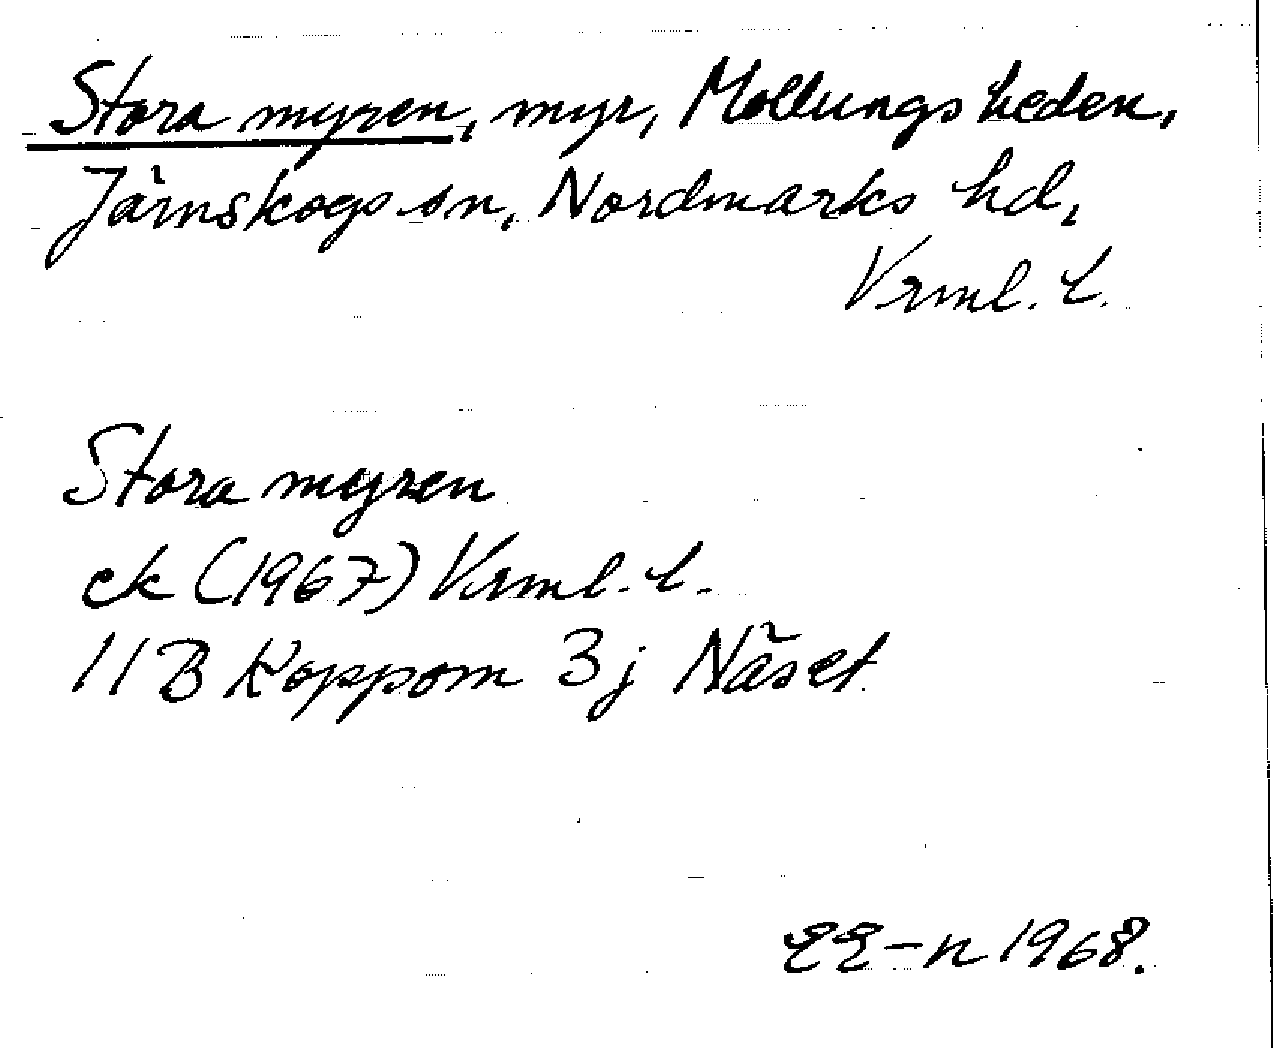 Stora myren, myr, Mollungsheden,
Järnskogs sn, Nordmarks hd,
Vrml. l.
Stora myren
ek (1967) Vrml. l.
11B Koppom 3j Näset
EE-n 1968.